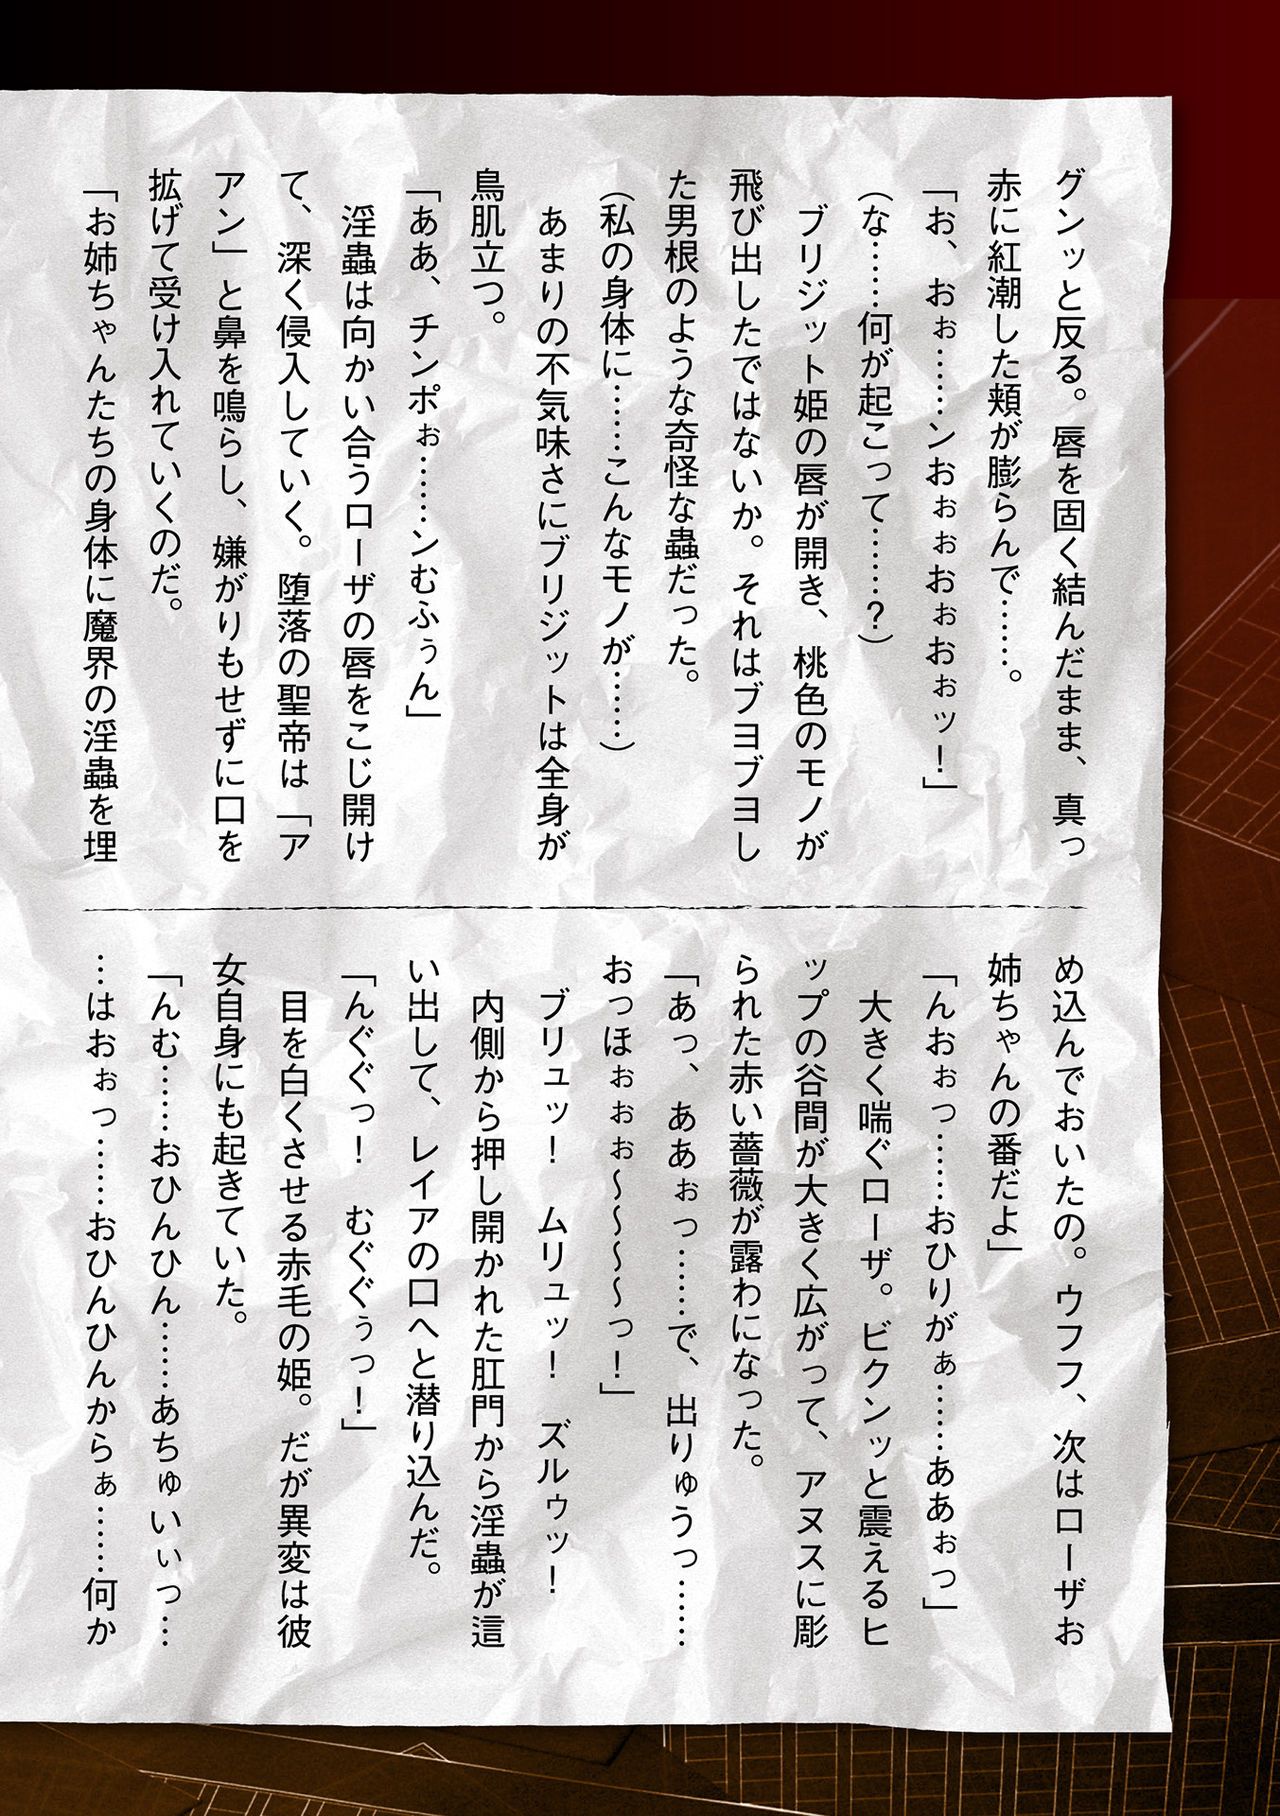 グンッと反る。唇を固く結んだまま、真っ
赤に紅潮した頬が膨らんで……。
「お、おぉ……ンおぉぉおぉおぉッ！」
（な……何が起こって……？）
ブリジット姫の唇が開き、桃色のモノが
飛び出したではないか。それはブヨブヨし
た男根のような奇怪な蟲だった。
（私の身体に……こんなモノが……）
あまりの不気味さにブリジットは全身が
鳥肌立つ。
「ああ、チンポぉ……ンむふぅん」
淫蟲は向かい合うローザの唇をこじ開け
て、深く侵入していく。堕落の聖帝は「ア
アン」と鼻を鳴らし、嫌がりもせずに口を
拡げて受け入れていくのだ。
「お姉ちゃんたちの身体に魔界の淫蟲を埋
め込んでおいたの。ウフフ、次はローザお
姉ちゃんの番だよ」
「んおぉっ……おひりがぁ……ああぉっ」
大きく喘ぐローザ。ビクンッと震えるヒ
ップの谷間が大きく広がって、アヌスに彫
られた赤い薔薇が露わになった。
「あっ、ああぉっ……で、出りゅうっ……
おっほぉぉぉ～～～～っ！」
ブリュッ！　ムリュッ！　ズルゥッ！
内側から押し開かれた肛門から淫蟲が這
い出して、レイアの口へと潜り込んだ。
「んぐぐっ！　むぐぐぅっ！」
目を白くさせる赤毛の姫。だが異変は彼
女自身にも起きていた。
「んむ……おひんひん……あちゅいぃっ…
…はおぉっ……おひんひんからぁ……何か